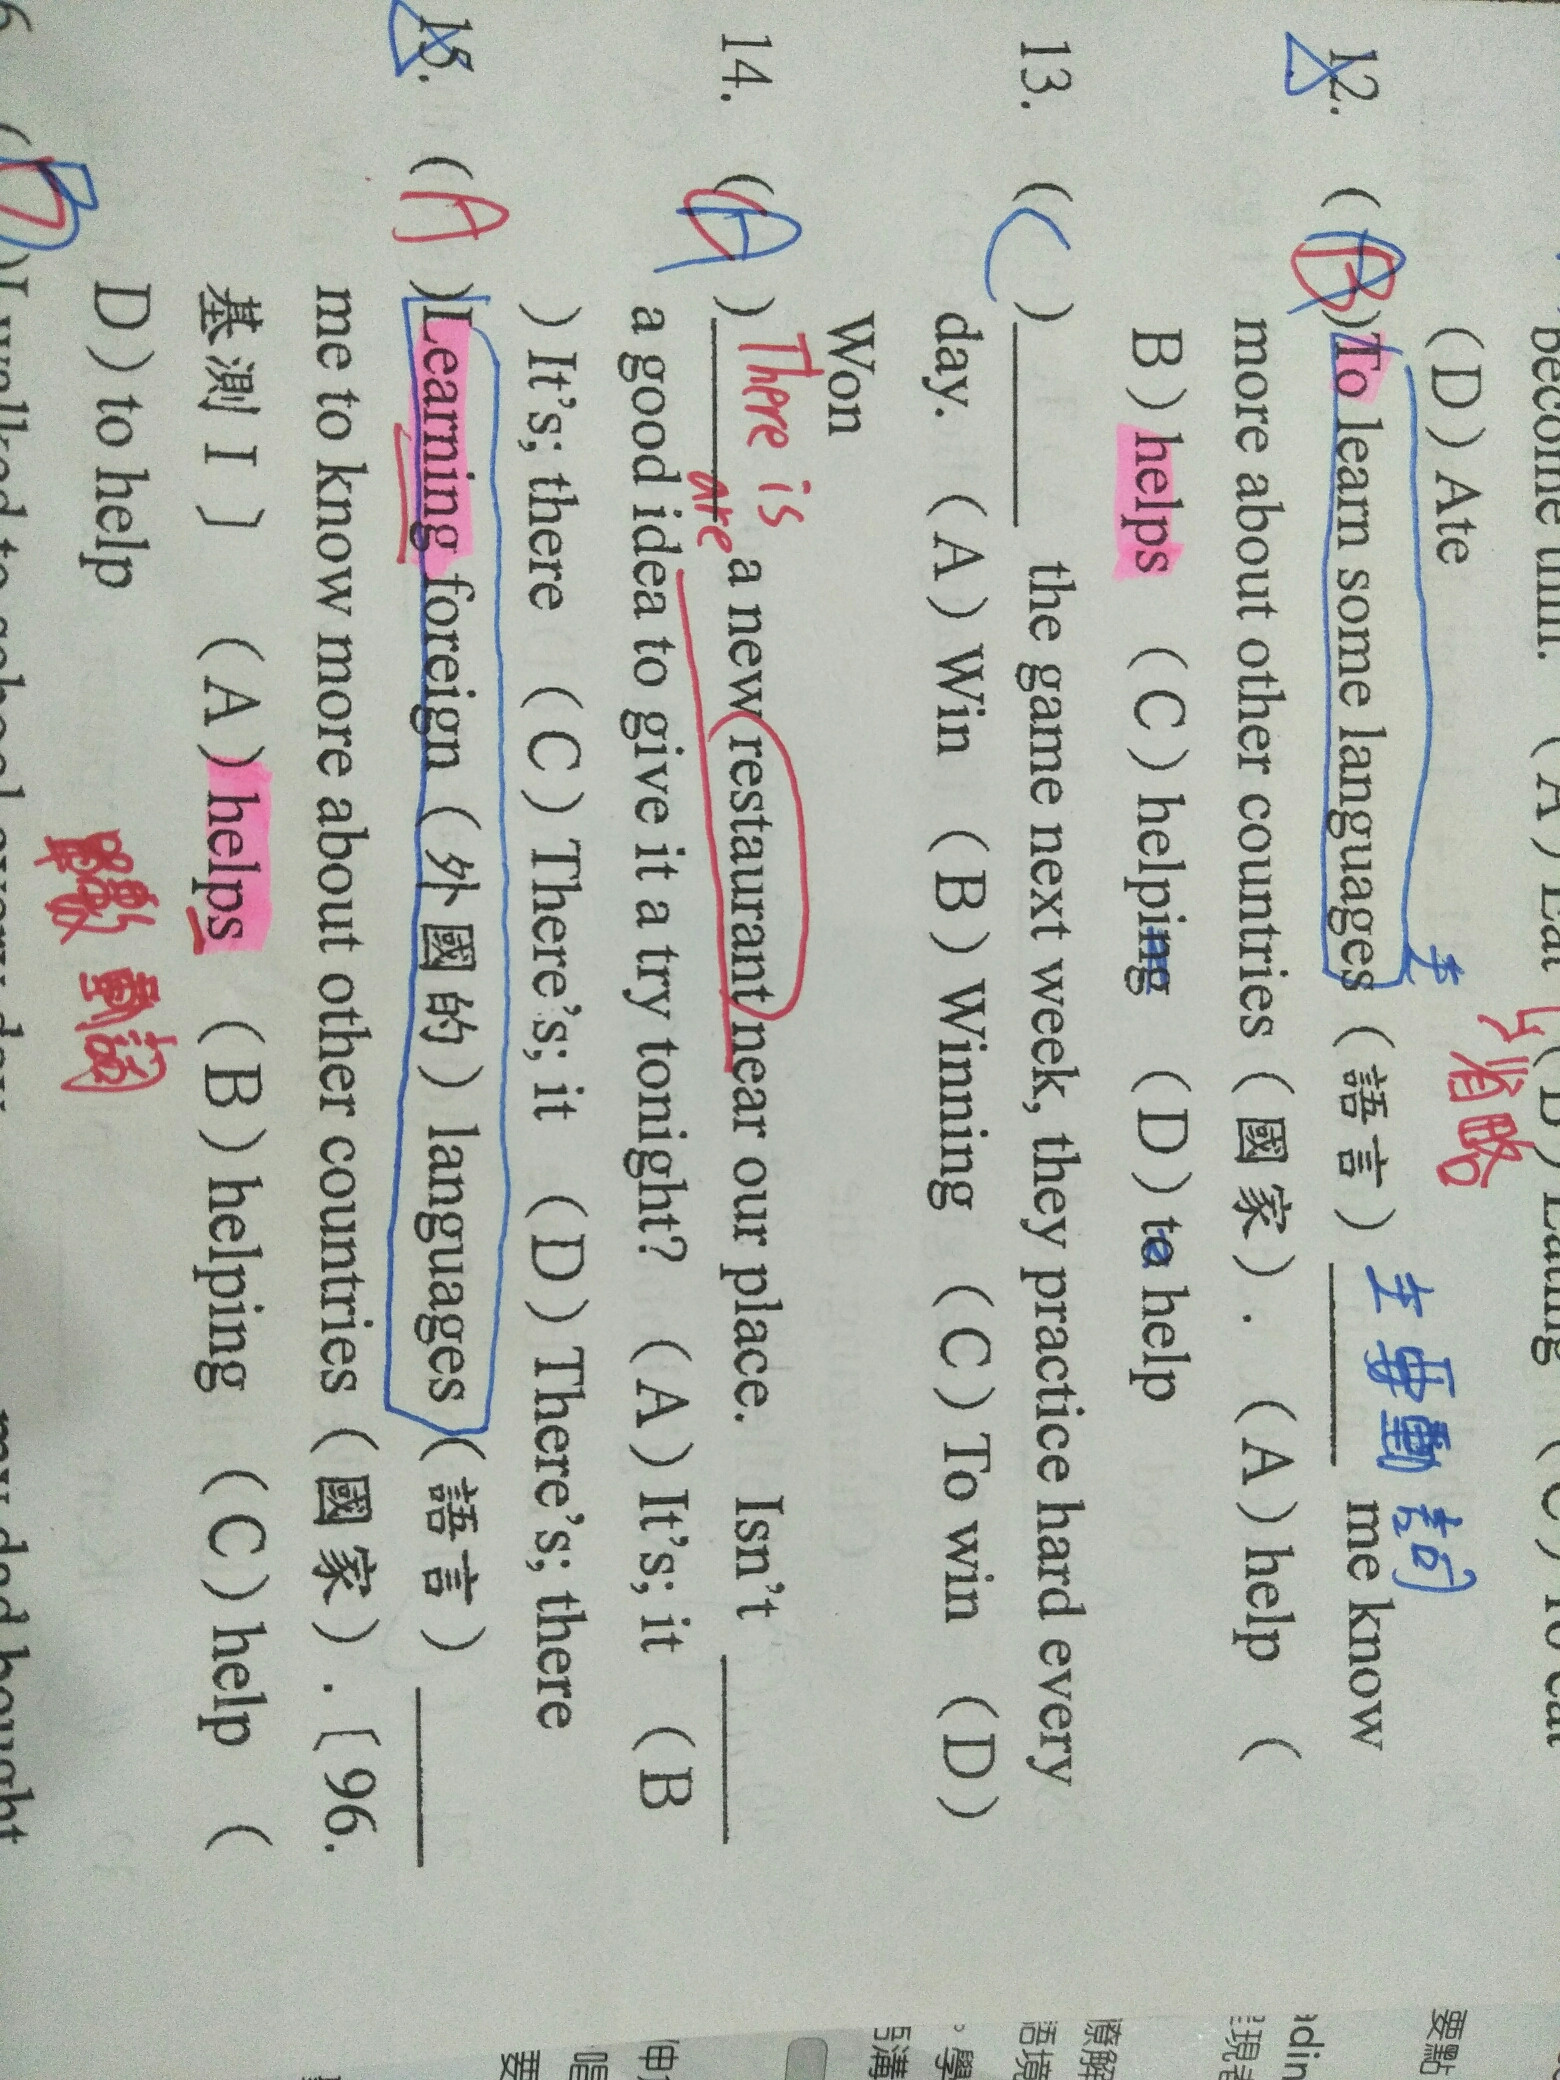 become thin. (A) Eat (B) Eating (C) To eat
(D) Ate
省略
主
主要動詞
12. (B) To learn some languages (語言) ______ me know
more about other countries (國家). (A) help (
B) helps (C) helping (D) to help
13. (C) ______ the game next week, they practice hard every
day. (A) Win (B) Winning (C) To win (D)
Won
There is
are
14. ( ) ______ a new restaurant near our place. Isn't ______
a good idea to give it a try tonight? (A) It's; it (B
) It's; there (C) There's; it (D) There's; there
15. (A) Learning foreign (外國的) languages (語言) ______
me to know more about other countries (國家). 〔96.
基測 I〕 (A) helps (B) helping (C) help (
D) to help
單數 動詞
I walked to school every day
my dad bought
要點